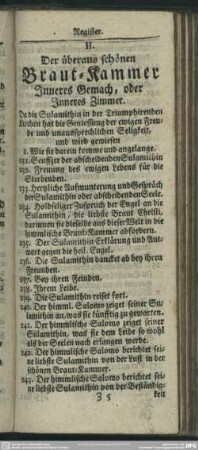 Register.
II.
Der überaus schönen
Braut-Kammer
Inneres Gemach, oder
Inneres Zimmer.
Da die Sulamithin in der Triumphirenden
Kirchen hat die Geniessung der ewigen Freu-
de und unaussprechlichen Seligkeit,
und wird gewiesen
I. Wie sie darein komme und angelange.
131. Seuffzer der abscheidenden Sulamithin
132. des ewigen Lebens für die
Sterbenden.
133. Hertzliche Auffmunterung und Gespräch
der Sulamithin oder abscheidenden Seele.
134. Holdseliger Zuspruch der Engel an die
Sulamithin, die liebste Braut Christi,
darinnen sie dieselbe aus dieser Welt in die
himmlische Braut-Kammer abfordern.
135. Der Sulamithin Erklärung und Ant-
wort gegen die heil. Engel.
136. Die Sulamithin dancket ab bey ihren
Freunden.
137. Bey ihren Feinden.
138. Ihrem Leibe.
139. Die Sulamithin reiset fort.
140. Der himml. Salomo zeiget seiner Su-
lamithin an, was sie künfftig zu gewarten.
141. Der himmlische Salomo zeiget seiner
Sulamithin, was sie dem Leibe so wohl
als der Seelen nach erlangen werde.
142. Der himmlische Salomo berichtet sei-
ne liebste Sulamithin von der Lust in der
schönen Braut-Kammer.
143. Der himmlische Salomo berichtet sei-
ne liebste Sulamithin von der Beständig-
3 5 keit